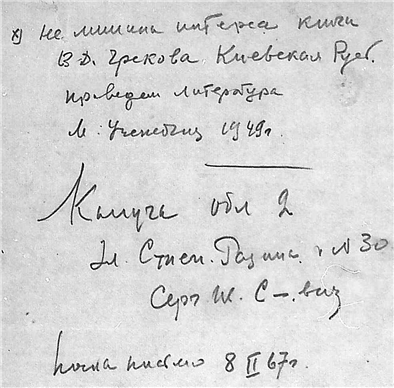 х) не лишина интереса книги
В. Д. Грекова Киевская Русь.
приведен литература
М. Учпедгиз 1949 г.
Калуга обл 2
Ул. Степ. Разина. № 30
Серг
письмо 8 II 67 г.